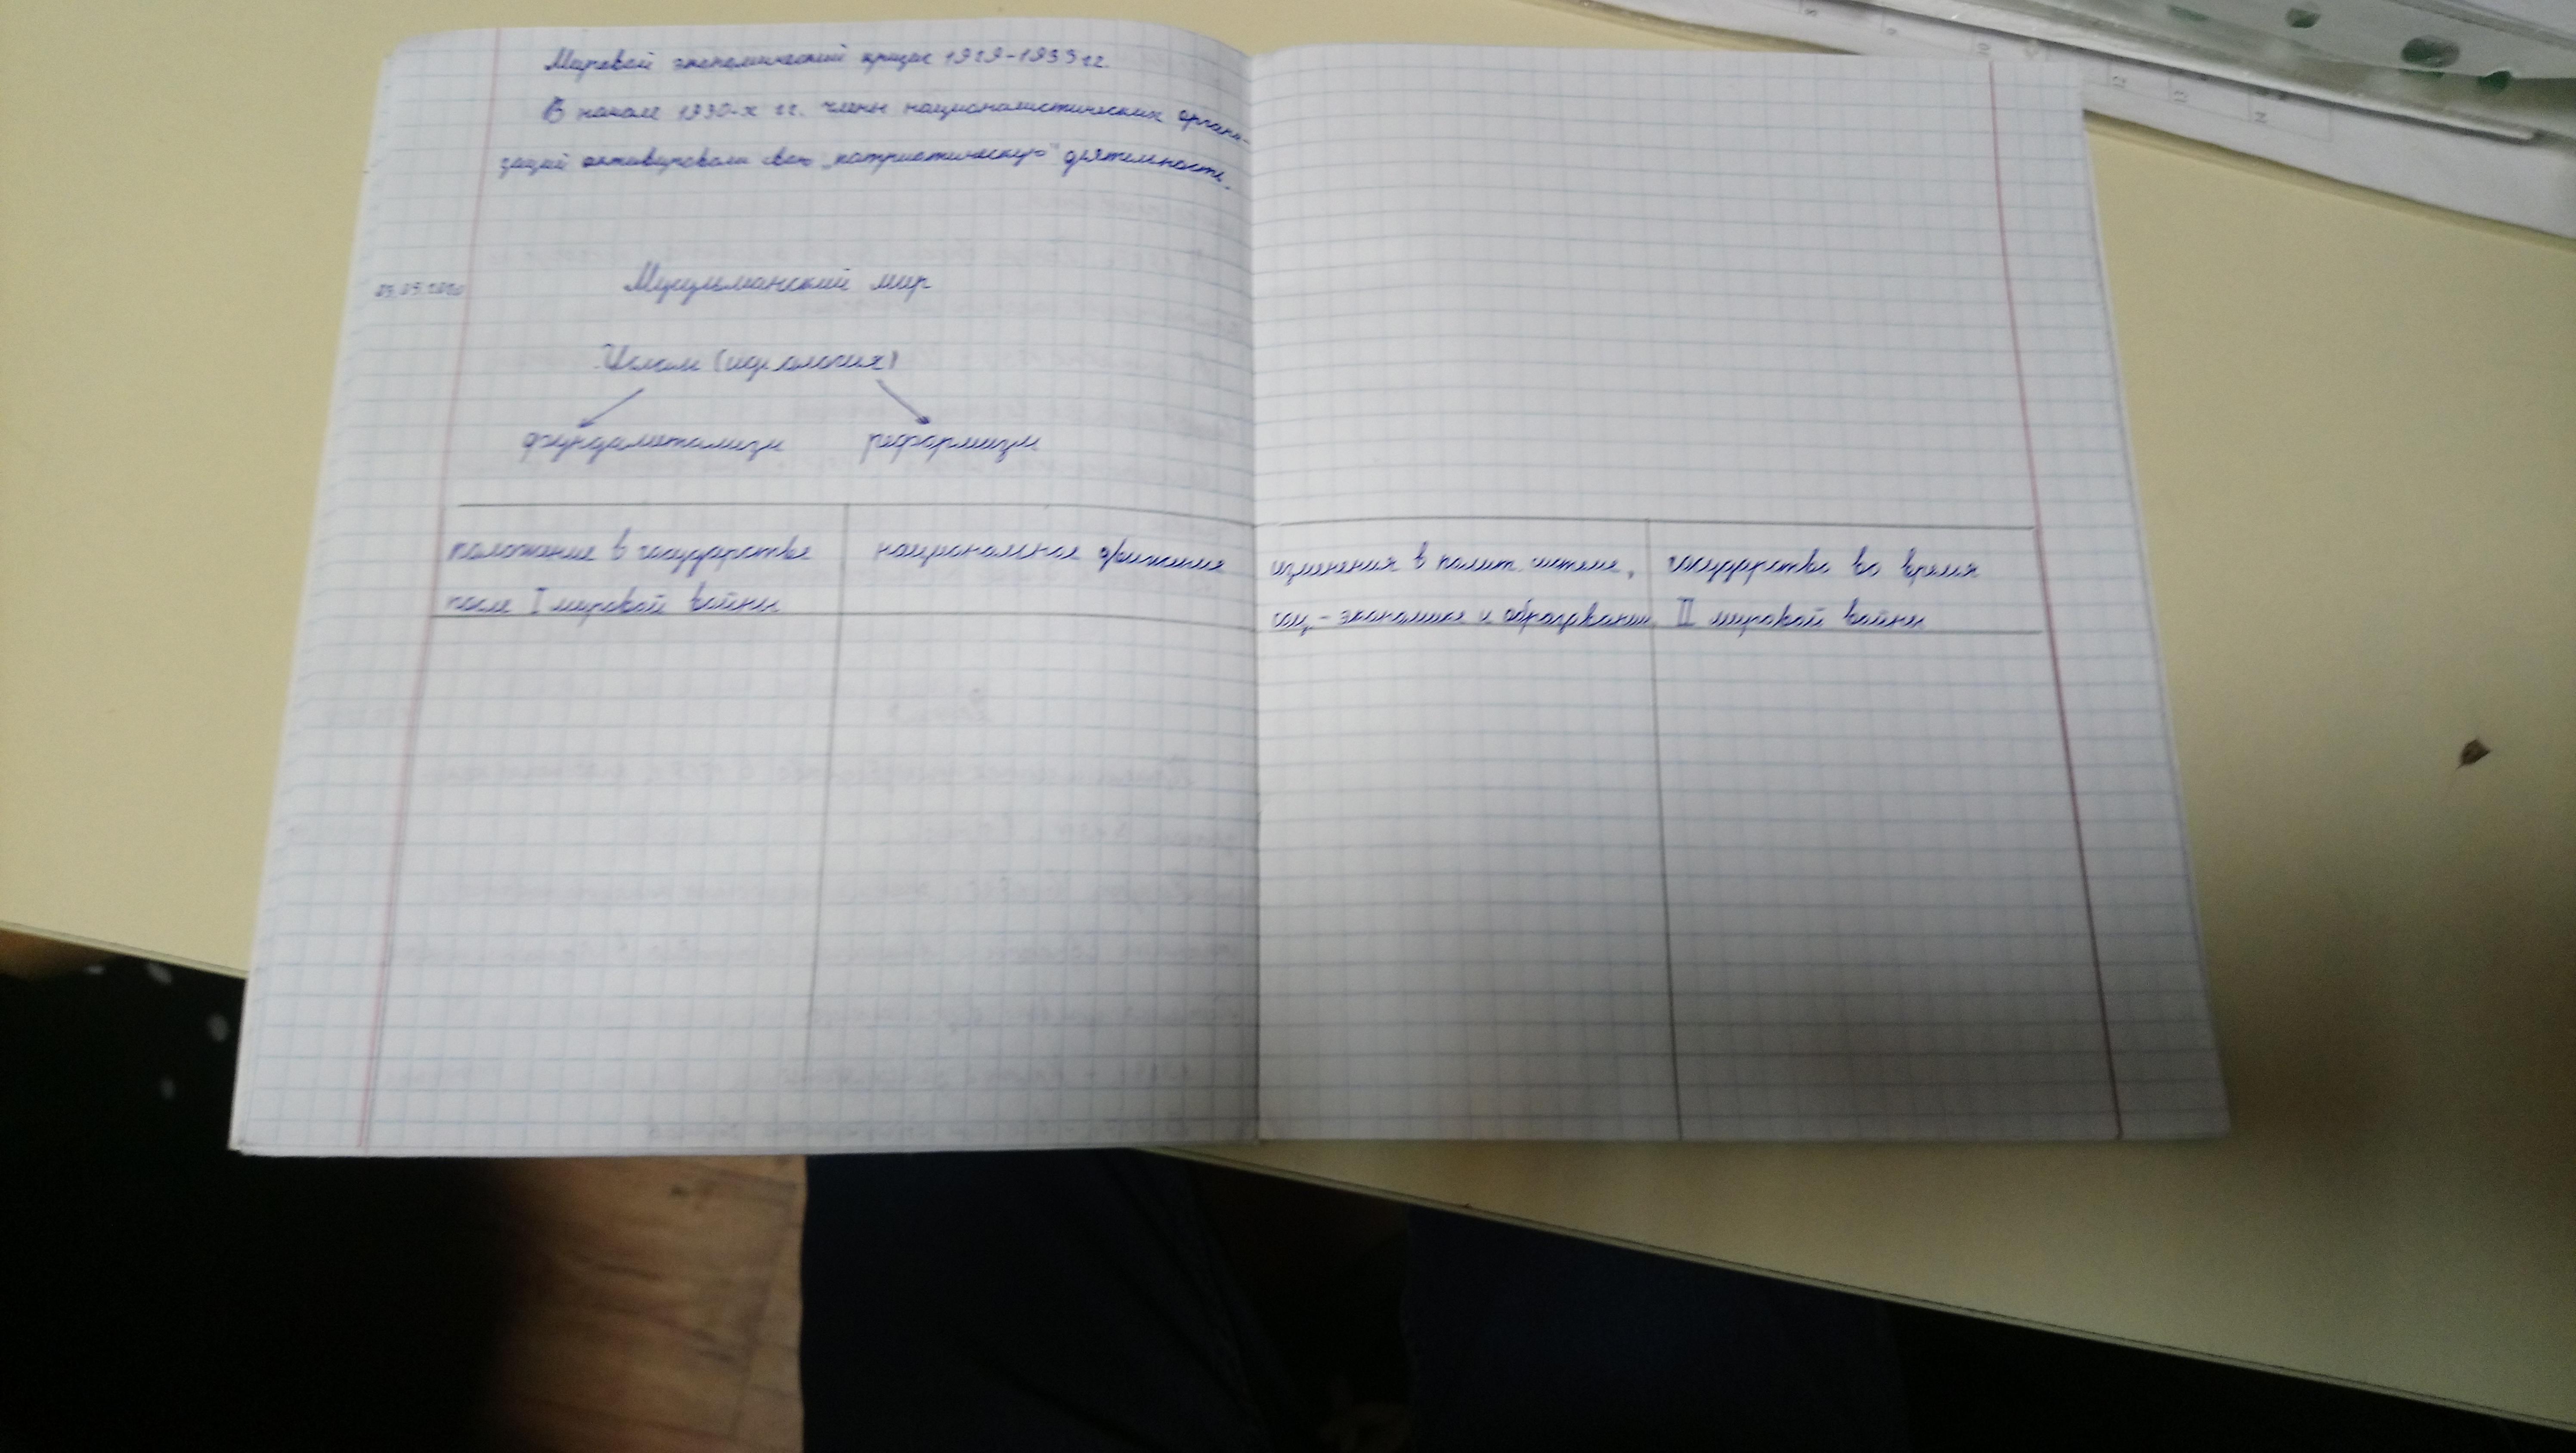 Мировой экономический кризис 1929-1933 гг.
В начале 1930-х гг. члены националистических органи-
заций активировали свою „патриотическую" деятельность.
Мусульманский мир
Ислам (идеология)
фундаметализм реформизм
положение в государстве
после I мировой войны
национальное движение
изменения в полит. системе,
соц.-экономике и образовании
государство во время
II мировой войны